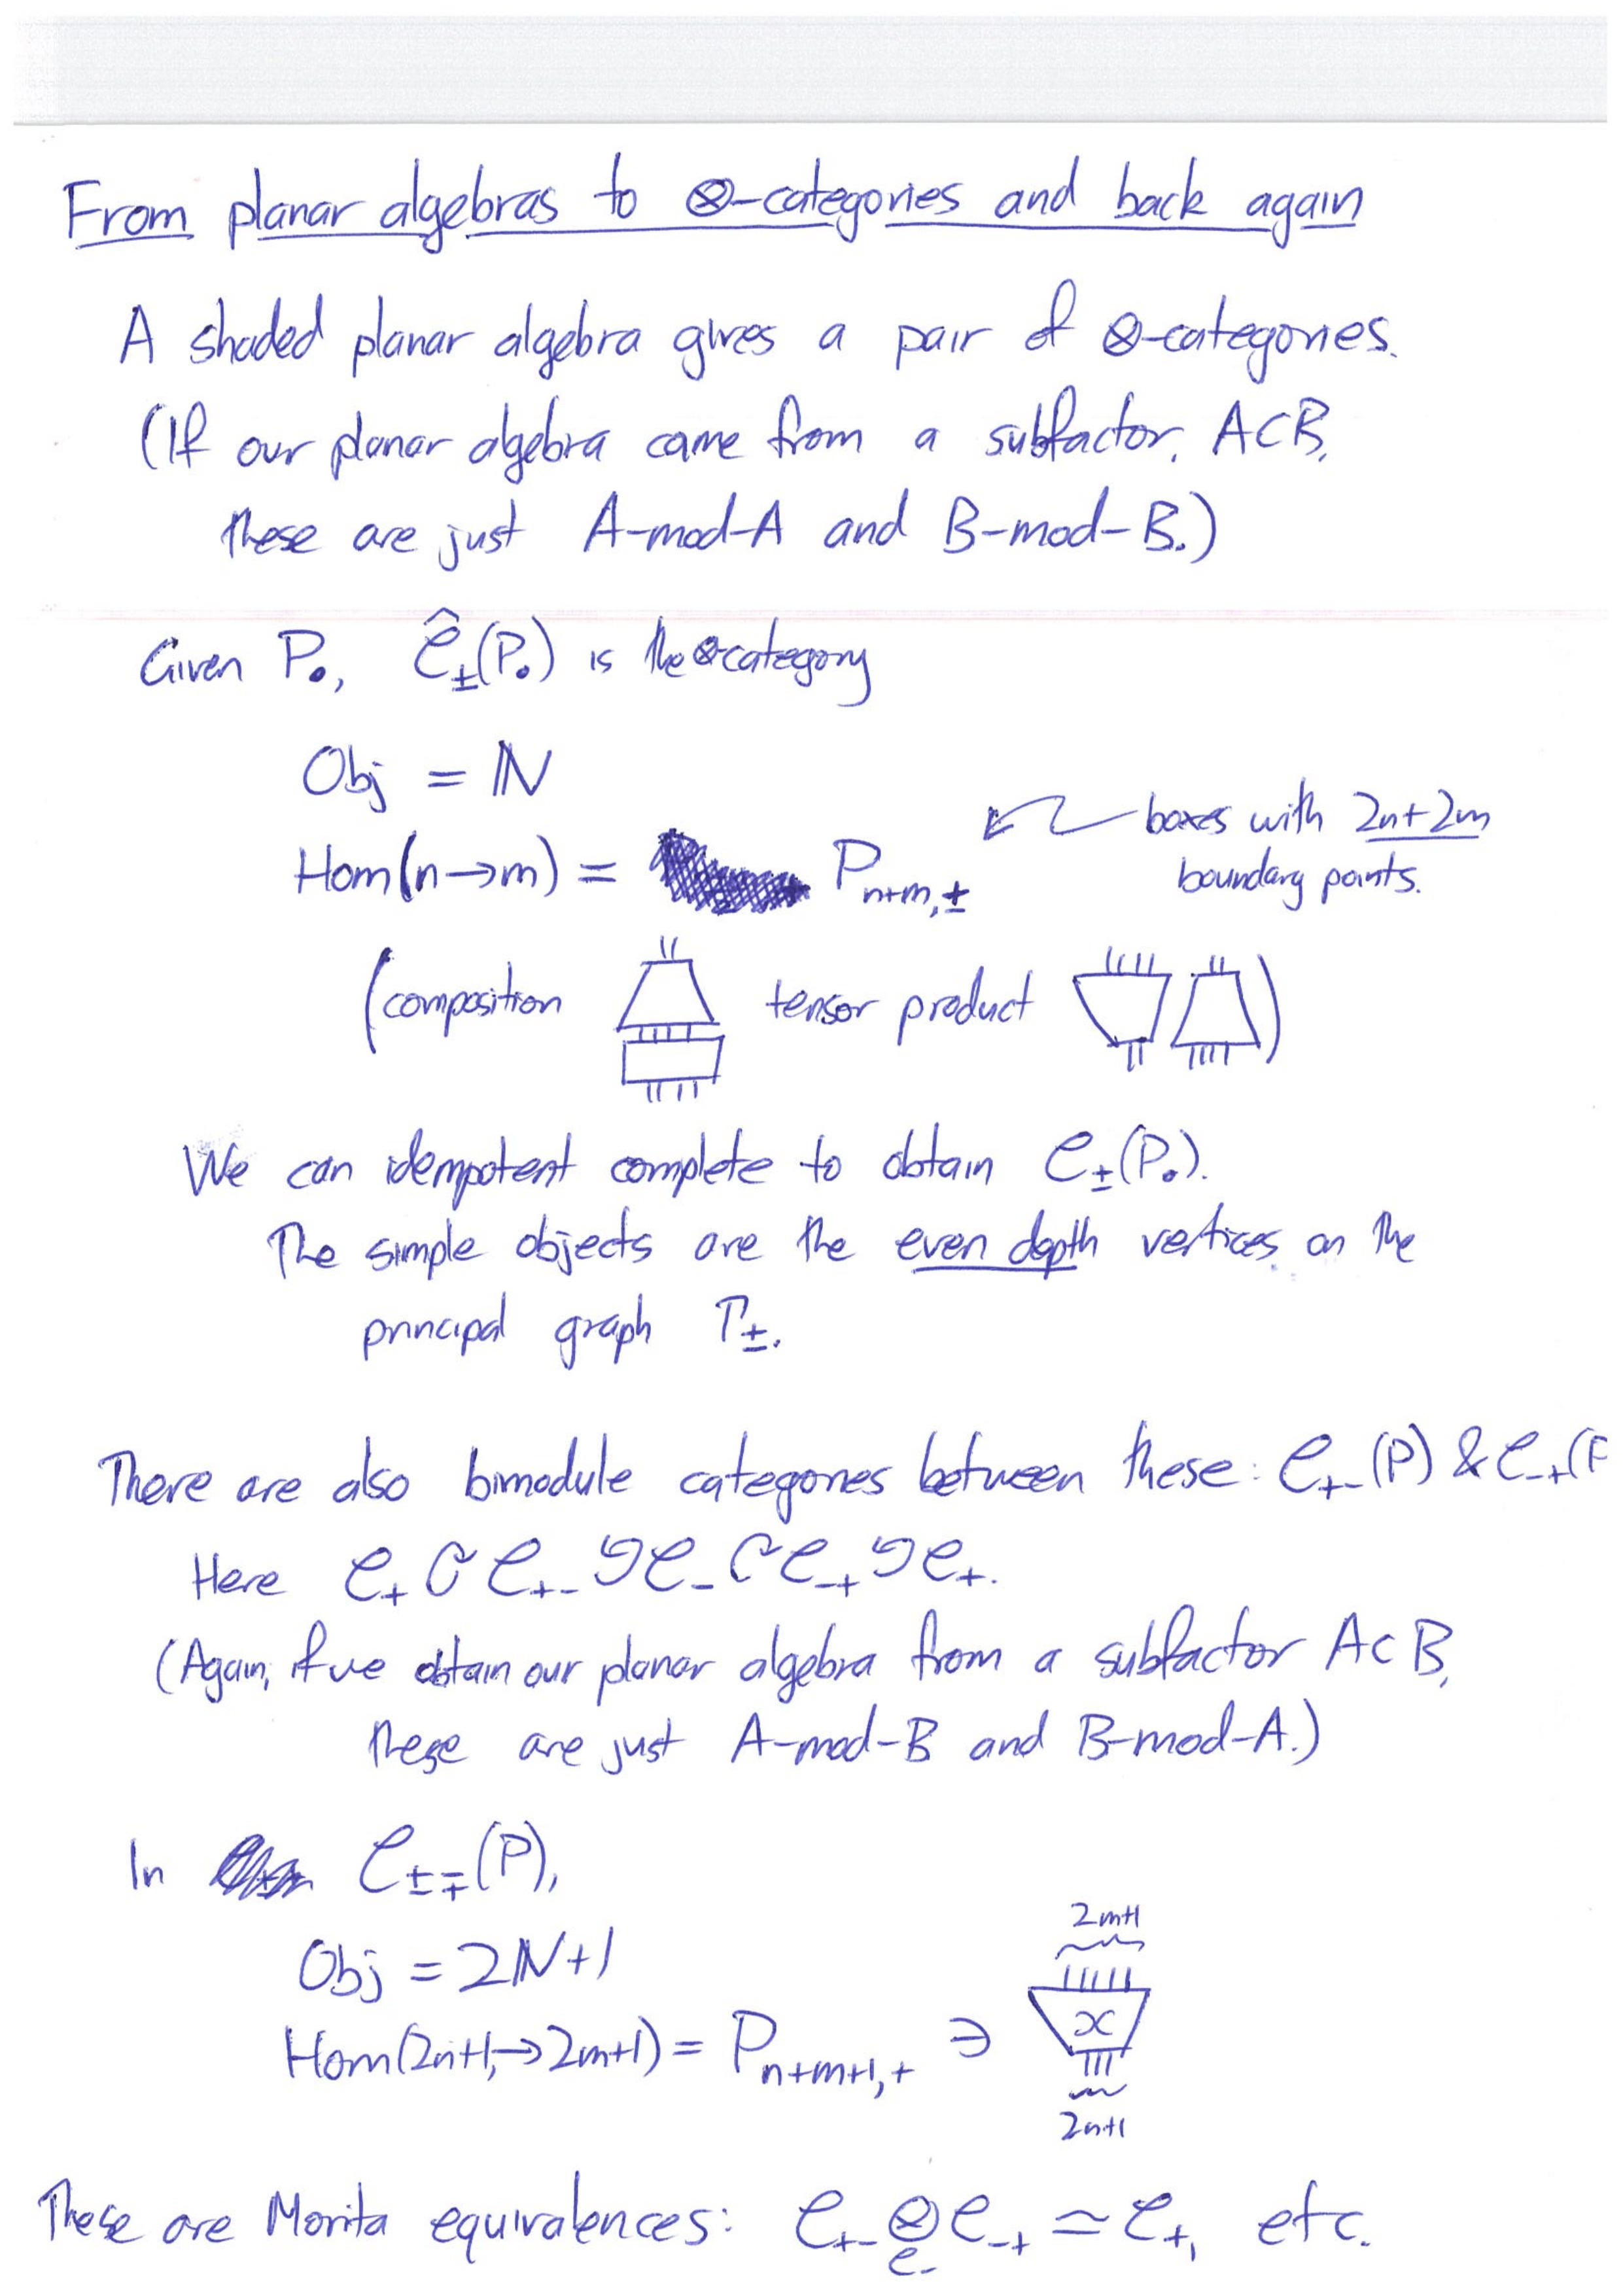 From planar algebras to ⊗-categories and back again
A shaded planar algebra gives a pair of ⊗-categories.
(If our planar algebra came from a subfactor, A⊂B,
these are just A-mod-A and B-mod-B.)
Given P•, Ĉ±(P•) is the ⊗category
Obj = ℕ
Hom(n→m) = P_{n+m,±}
boxes with 2n+2m
boundary points.
(composition tensor product )
We can idempotent complete to obtain C±(P•).
The simple objects are the even depth vertices on the
principal graph Γ±.
There are also bimodule categories between these: C₊₋(P) & C₋₊(P
Here C₊ ↻ C₊₋ ↺ C₋ ↻ C₋₊ ↺ C₊.
(Again, if we obtain our planar algebra from a subfactor A⊂B,
these are just A-mod-B and B-mod-A.)
In C±∓(P),
2m+1
Obj = 2ℕ+1
Hom(2n+1,→2m+1) = P_{n+m+1,+} ∋ x
2n+1
These are Morita equivalences: C₊₋ ⊗_{C₋} C₋₊ ≃ C₊, etc.